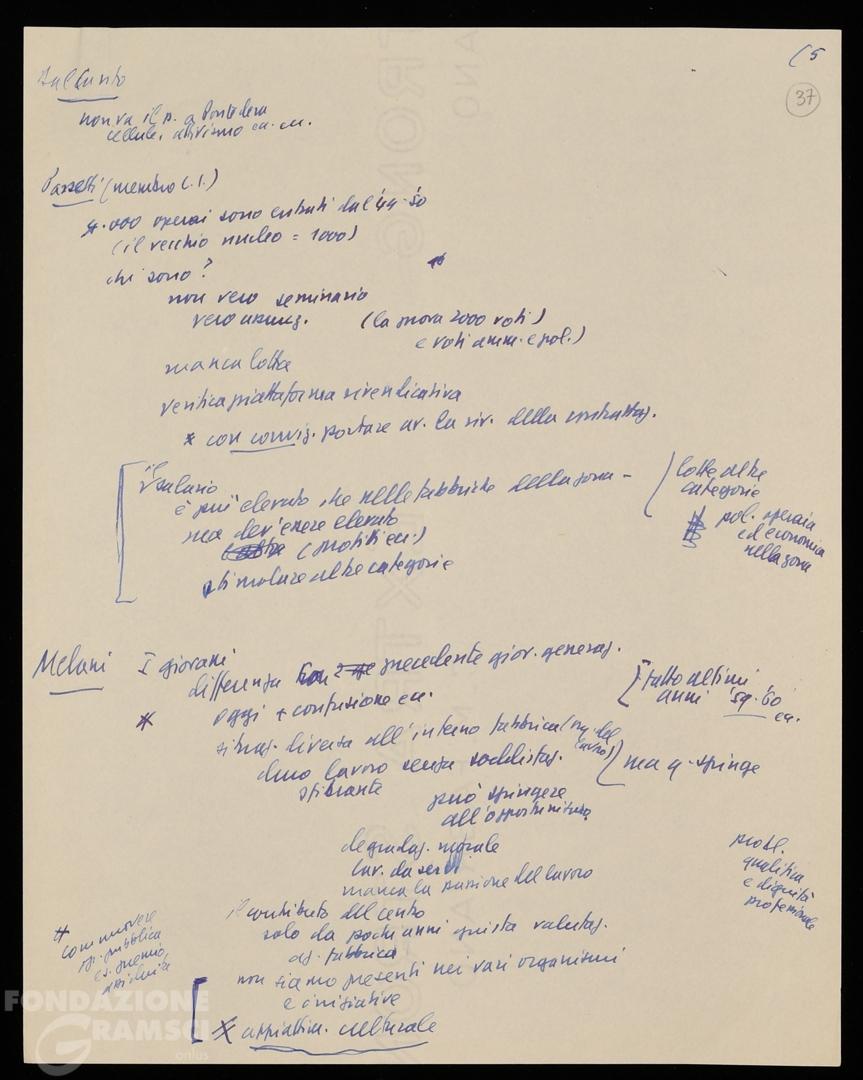 (5
37
Dal Canto
non va il p. a Pontedera
cellule, attivismo ecc. ecc.
(membro C.I.)
4.000 operai sono entrati dal '44-'50
(il vecchio nucleo = 1000)
chi sono?
non vero seminario
vero
(la prova 2000 voti)
e voti amm. e pol.)
manca lotta
verifica piattaforma rivendicativa
* con conviz. portare av. la riv. della contrattaz.
il salario
è più elevato che nelle fabbriche della zona -
ma dev'essere elevato
(motivi ecc.)
stimolare altre categorie
lotte altre
categorie
pol. operaia
ed economica
nella zona
Melani I giovani
differenza con precedente giov. generaz.
* oggi + confusione ecc.
fatto ultimi
anni '59-'60
ecc.
situaz. diversa all'interno fabbrica (org. del
lavoro)
duro lavoro senza soddisfaz.
sfibrante
ma q. spinge
può spingere
all'opportunismo
degradaz. morale
lav. da servi
manca la passione del lavoro
probl.
qualifica
e dignità
professionale
il contributo del centro
solo da pochi anni giusta valutaz.
az. fabbrica
# commuovere
op. pubblica
es. premio
non siamo presenti nei vari organismi
e iniziative
* appiattim. culturale
FONDAZIONE
GRAMSCI
onlus